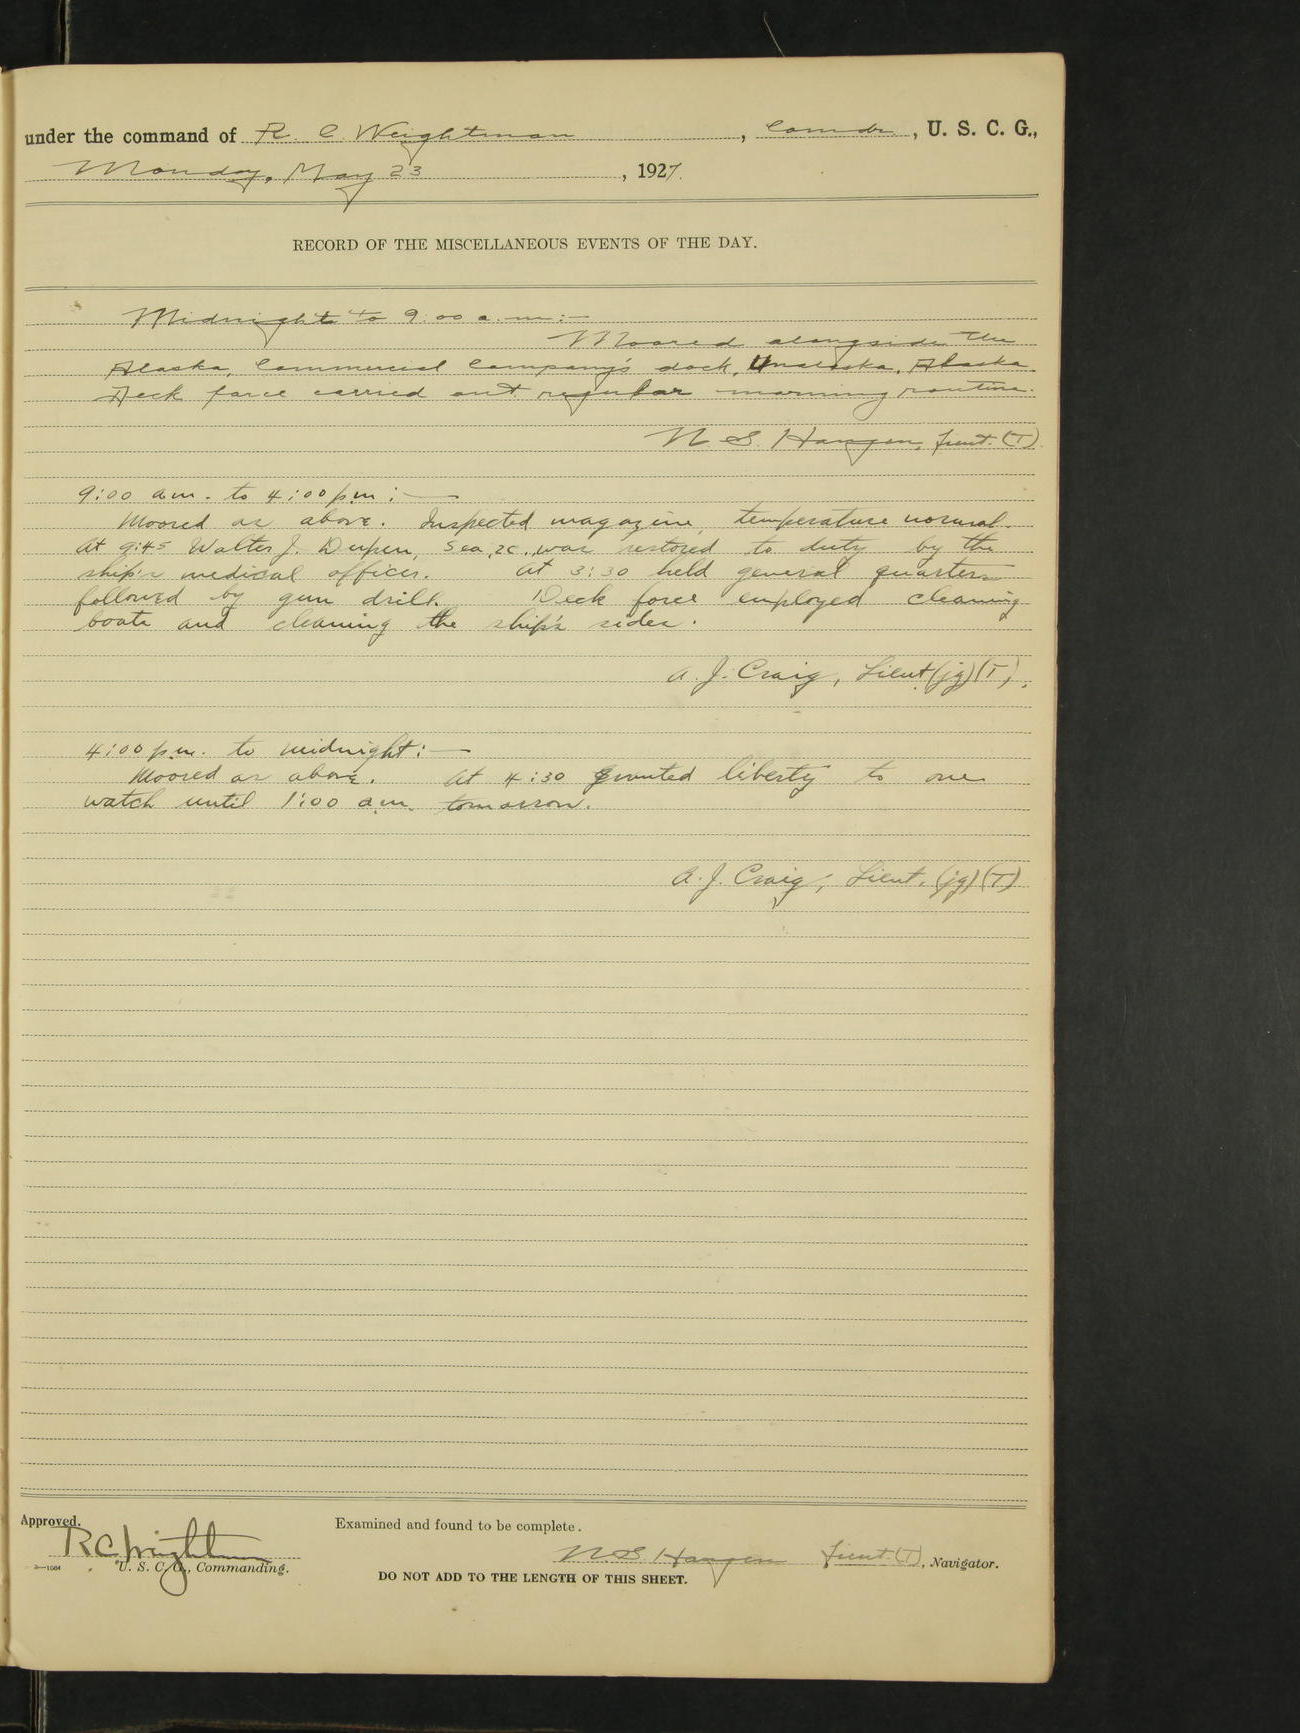 under the command of R. C. Weightman, Comdr., U. S. C. G.,
Monday, May 23, 1927.
RECORD OF THE MISCELLANEOUS EVENTS OF THE DAY.
Midnight to 9:00 a.m:-
Moored alongside the
Alaska, Commercial Company's dock, Unalaska, Alaska.
Deck force carried out regular morning routine.
N. S. Haugen, Lieut. (T).
9:00 a.m. to 4:00 p.m:—
Moored as above. Inspected magazine, temperature normal.
At 9:45 Walter J. Sea. 2c., was restored to duty by the
ship's medical officer. At 3:30 held general quarters
followed by gun drill. Deck force employed cleaning
boats and cleaning the ship's sides.
A. J. Craig, Lieut. (jg) (T).
4:00 p.m. to midnight:—
Moored as above. At 4:30 granted liberty to one
watch until 1:00 a.m. tomorrow.
A. J. Craig, Lieut. (jg) (T)
Approved.
Examined and found to be complete.
R C Weightman
N. S. Haugen Lieut. (T), Navigator.
2—1064
U. S. C. G., Commanding.
DO NOT ADD TO THE LENGTH OF THIS SHEET.